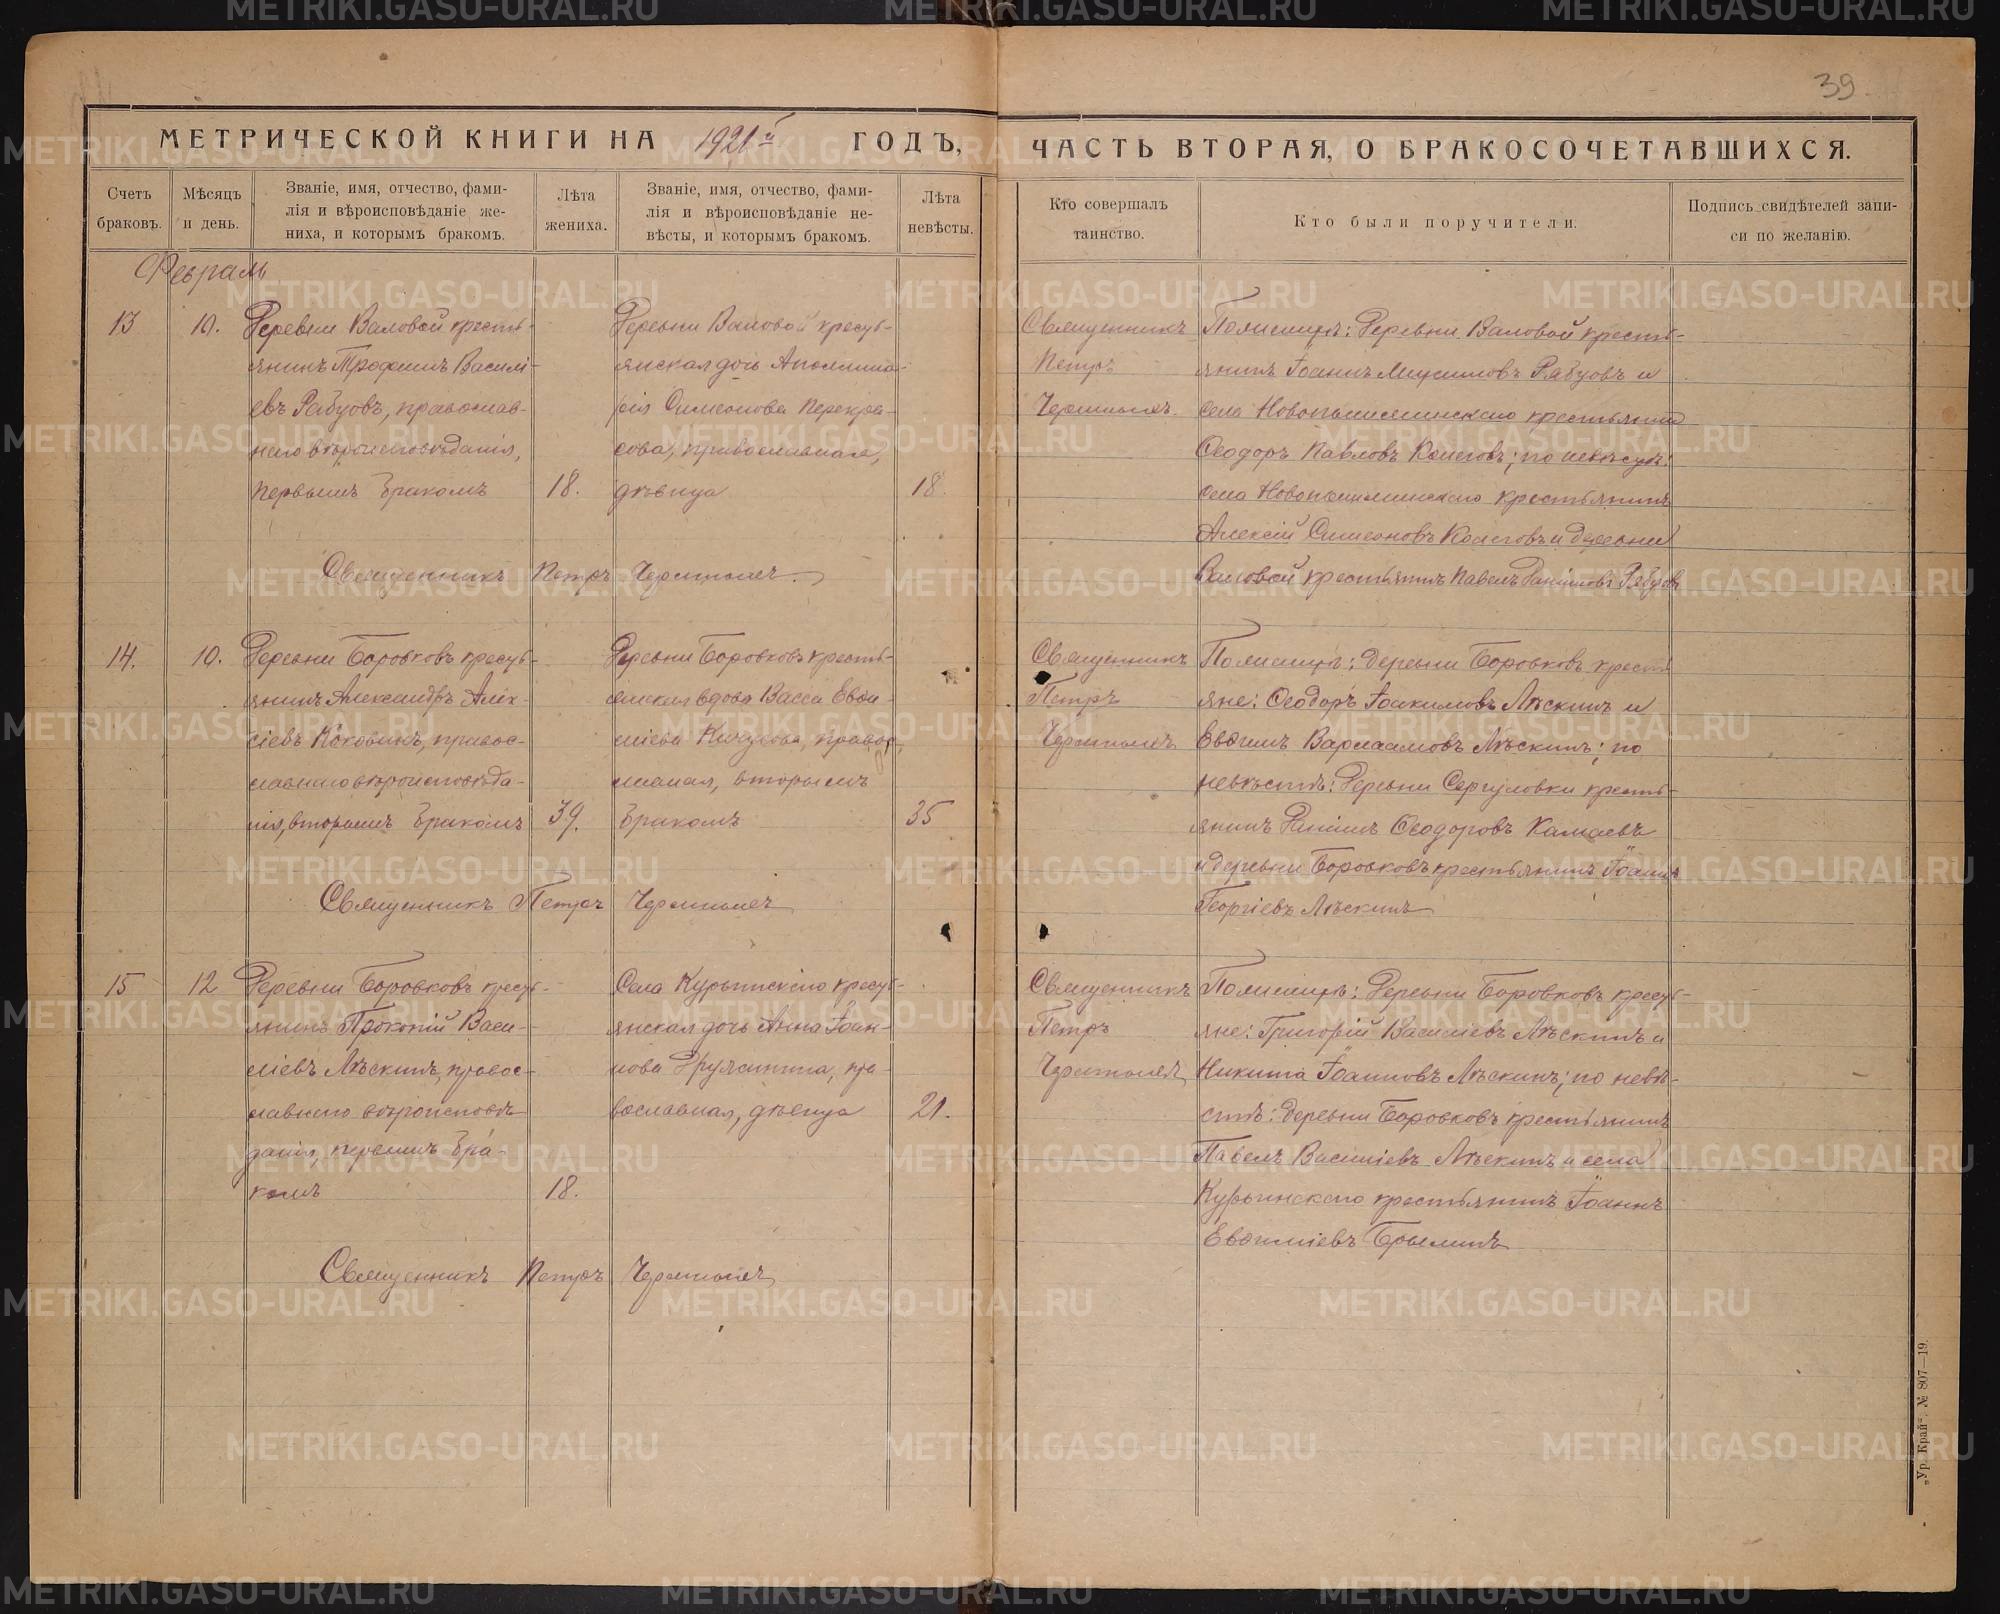 39
МЕТРИЧЕСКОЙ КНИГИ НА 1921й ГОДЪ,
ЧАСТЬ ВТОРАЯ, О БРАКОСОЧЕТАВШИХСЯ.
Счетъ
браковъ.
Мѣсяцъ
и день.
Званіе, имя, отчество, фами-
лія и вѣроисповѣданіе же-
ниха, и которымъ бракомъ.
Лѣта
жениха.
Званіе, имя, отчество, фами-
лія и вѣроисповѣданіе не-
вѣсты, и которымъ бракомъ.
Лѣта
невѣсты.
Кто совершалъ
таинство.
Кто были поручители.
Подпись свидѣтелей запи-
си по желанію.
Февраль
13
10.
Деревни Валовой кресть-
янинъ Трофимъ Василі-
евъ Рябцовъ, православ-
наго вѣроисповѣданія,
первымъ бракомъ
18.
Деревни Валовой кресть-
янская дочь Аполлина-
рія Симеонова
православная,
дѣвица
18.
Священникъ
Петръ
По женихѣ: Деревни Валовой кресть-
янинъ Іоаннъ Рябцовъ и
села Новопышминскаго крестьянинъ
Ѳеодоръ Павловъ по невѣстѣ:
села Новопышминскаго крестьянинъ
Алексій Симеоновъ и деревни
Валовой крестьянинъ Павелъ Даніиловъ Рябцовъ
Священникъ Петръ
14.
10.
Деревни Боровковъ кресть-
янинъ Александръ Алек-
сіевъ Коковинъ, правос-
лавнаго вѣроисповѣда-
нія, вторымъ бракомъ
39.
Деревни Боровковъ кресть-
янская вдова Васса Евѳи-
міева правос-
лавная, вторымъ
бракомъ
35
Священникъ
Петръ
По женихѣ: деревни Боровковъ кресть
яне: Ѳеодоръ Іоакимовъ Лѣскинъ и
Евѳимъ Варлаамовъ Лѣскинъ; по
невѣстѣ: Деревни Сергуловки кресть-
янинъ Даніилъ Ѳеодоровъ Камаевъ
и деревни Боровковъ крестьянинъ Іоаннъ
Георгіевъ Лѣскинъ
Священникъ Петръ
15
12
Деревни Боровковъ кресть-
янинъ Прокопій Васи-
ліевъ Лѣскинъ, правос-
лавнаго вѣроисповѣ
данія, первымъ бра-
комъ
18.
Села Курьинскаго кресть-
янская дочь Анна Іоан-
нова Дружинина, пра-
вославная, дѣвица
21.
Священникъ
Петръ
По женихѣ: Деревни Боровковъ кресть-
яне: Григорій Василіевъ Лѣскинъ и
Никита Іоанновъ Лѣскинъ; по невѣ-
стѣ: деревни Боровковъ крестьянинъ
Павелъ Василіевъ Лѣскинъ и села
Курьинскаго крестьянинъ Іоаннъ
Евѳиміевъ Брылинъ
Священникъ Петръ
„Ур. Край“. № 807—19.
METRIKI.GASO-URAL.RU